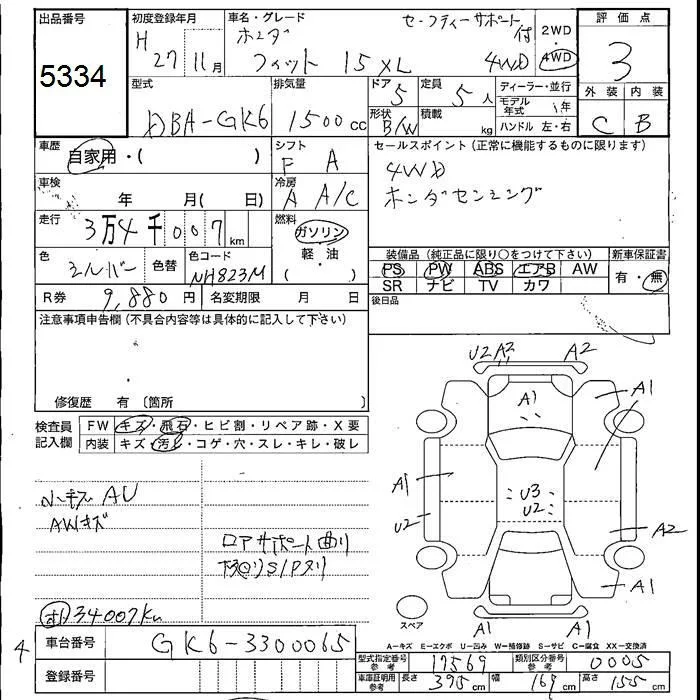 出品番号
5334
初度登録年月
H 27 11月
車名・グレード
ホンダ
フィット 15XL 4WD
セーフティーサポート付
2WD
4WD
評価点
3
外装 内装
C B
型式
DBA-GK6
排気量
1500cc
ドア 5
形状 B/W
定員 5人
積載 kg
ディーラー・並行
モデル年式 年
ハンドル 左・右
車歴
自家用・( )
シフト
F A
車検
年 月( 日)
冷房
A A/C
走行
3万4千007km
燃料
ガソリン
軽・油
( )
色
シルバー
色替
色コード
NH823M
R券 9,880円
名変期限 月 日
セールスポイント(正常に機能するものに限ります)
4WD
ホンダセンシング
装備品(純正品に限り○をつけて下さい)
PS PW ABS エアB AW
SR ナビ TV カワ
新車保証書
有・無
後日品
注意事項申告欄(不具合内容等は具体的に記入して下さい)
修復歴 有 〔箇所 〕
検査員記入欄
FW キズ・飛石・ヒビ割・リペア跡・X要
内装 キズ・汚レ・コゲ・穴・スレ・キレ・破レ
小キズ AU
AWキズ
ロアサポート曲り
34007Km
4
車台番号
GK6-3300065
登録番号
U2 A2 A2
A1 A1
A1
U3
U2
U2
A2
A1
A1 A1
スペア
A=キズ E=エクボ U=凹み W=補修跡 S=サビ C=腐食 XX=交換済
型式指定番号 参考 17569
類別区分番号 参考 0005
車庫証明用 参考 長さ 395cm 幅 169cm 高さ 155cm